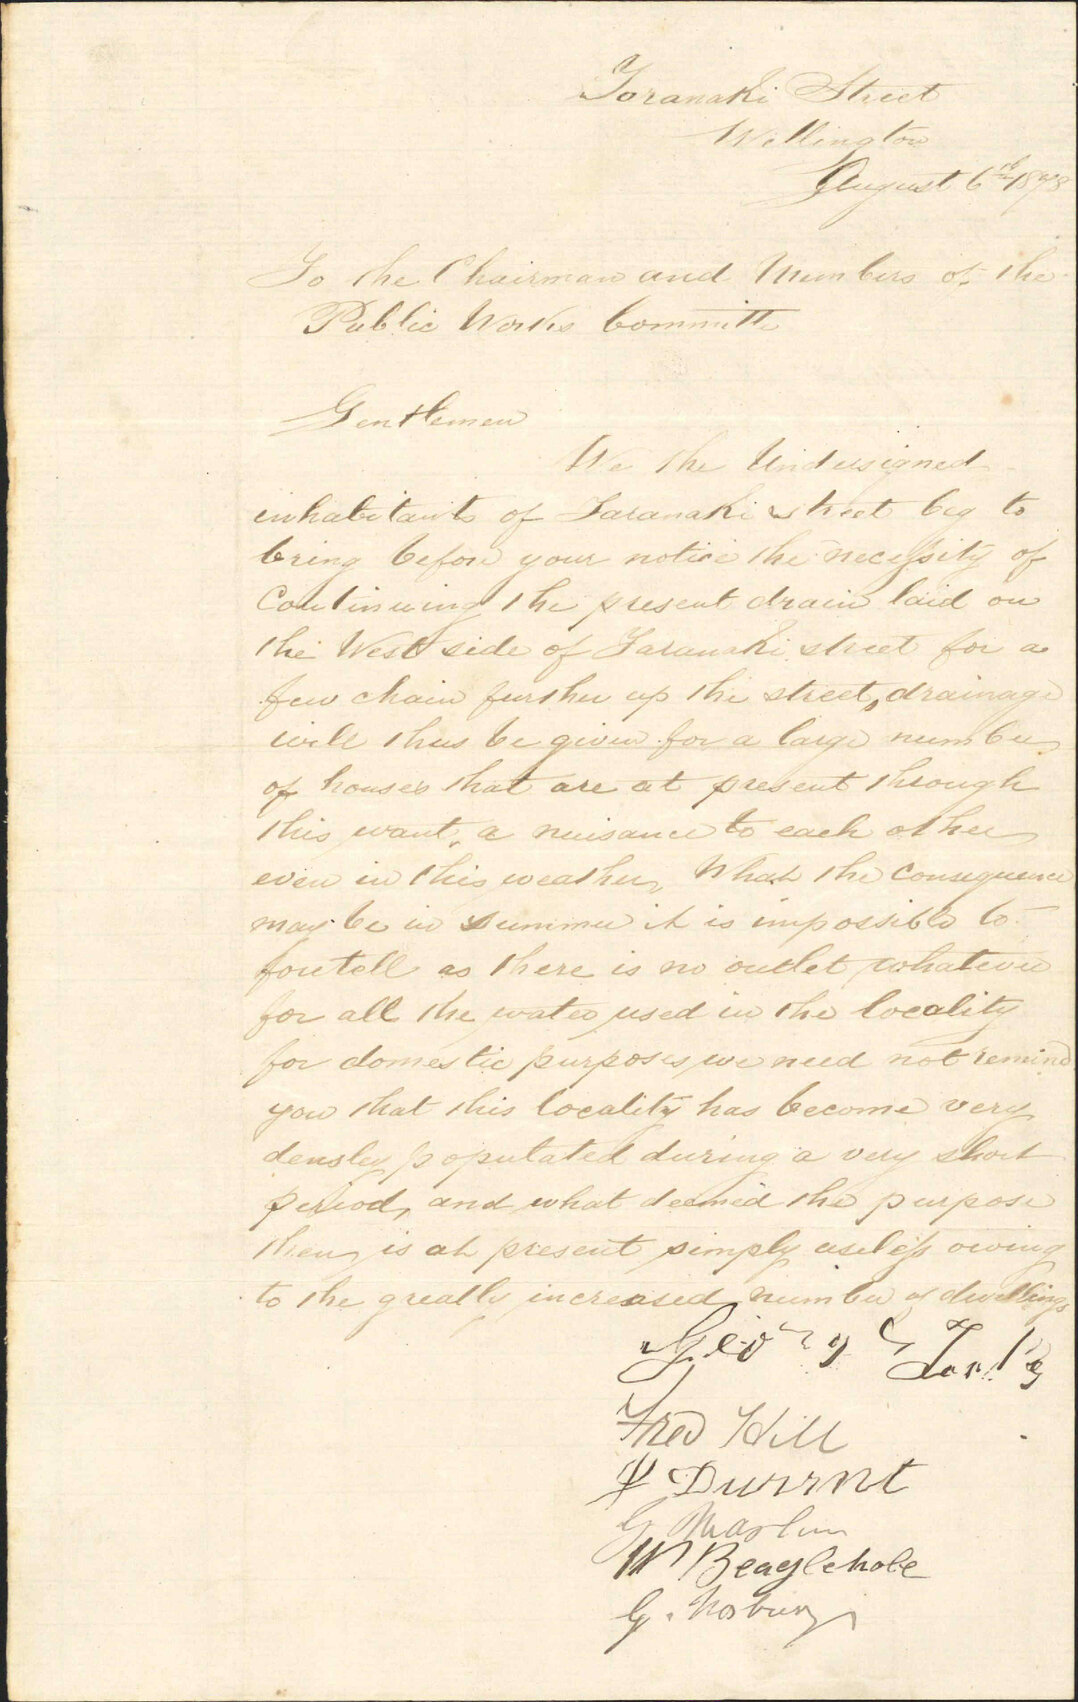 Toranaki Street
Wellington
August 6th 1878
To the Chairman and Members of the
Public Works Committe
Gentlemen
We the Undersigned
inhabitants of Taranaki street beg to
bring before your notice the necessity of
Continuing the present drain laid on
the West side of Taranaki street for a
few chain further up the street, drainage
will thus be given for a large number
of houses that are at present through
this want, a nuisance to each other
even in this weather, What the consequence
may be in summer it is impossible to
foretell as there is no outlet whatever
for all the water used in the locality
for domestic purposes we need not remind
you that this locality has become very
densley populated during a very short
period, and what deemed the purpose
then, is at present simply useless owing
to the greatly increased number of dwellings
George
Fred Hill
Durrnt
G
W Beaglehole
G.